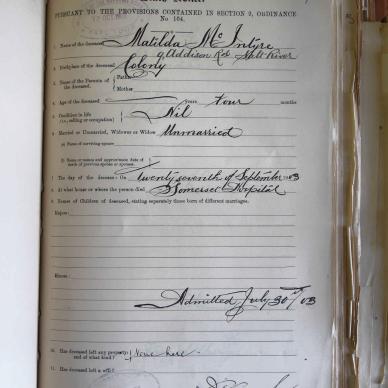 PURSUANT TO THE PROVISIONS CONTAINED IN SECTION 9, ORDINANCE
No. 104.
1. Name of the deceased Matilda McIntyre
9 Addison Rd Salt River
2. Birthplace of the deceased Colony
3. Names of the Parents of the deceased Father
Mother
4. Age of the deceased years four months
5. Condition in life Nil
(i.e., calling or occupation)
6. Married or Unmarried, Widower or Widow Unmarried
(a) Name of surviving spouse
(b) Name or names and approximate date of death of previous spouse or spouses.
7. The day of the decease: On Twenty seventh of September 1903
8. At what house or where the person died Somerset Hospital
9. Names of Children of deceased, stating separately those born of different marriages.
Major:
Minor:
Admitted July 30th/03
10. Has deceased left any property and of what kind? None here.
11. Has deceased left a will?